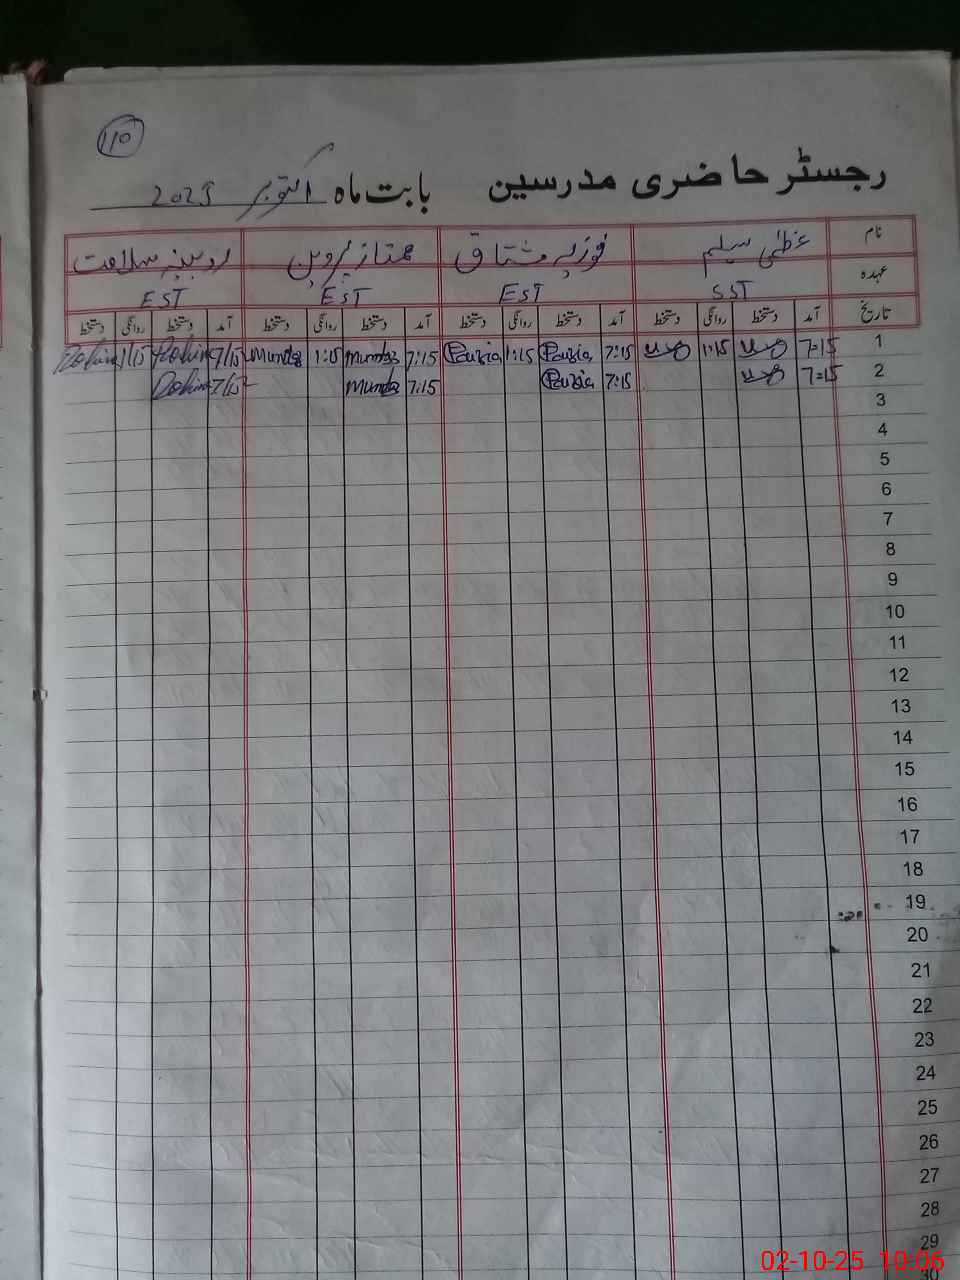 110
رجسٹر حاضری مدرسین بابت ماہ اکتوبر 2025
نام عظمٰی سلیم فوزیہ مشتاق ممتاز پروین روبینہ سلامت
عہدہ SST EST EST EST
تاریخ آمد دستخط روانگی دستخط آمد دستخط روانگی دستخط آمد دستخط روانگی دستخط آمد دستخط روانگی دستخط
1 7:15 1:15 7:15 Fouzia 1:15 Fouzia 7:15 Mumtaz 1:15 Mumtaz 7/15 Robina 1/15 Robina
2 7:15 7:15 Fouzia 7:15 Mumtaz 7/15 Robina
3
4
5
6
7
8
9
10
11
12
13
14
15
16
17
18
19
20
21
22
23
24
25
26
27
28
29
30
02-10-25 10:06